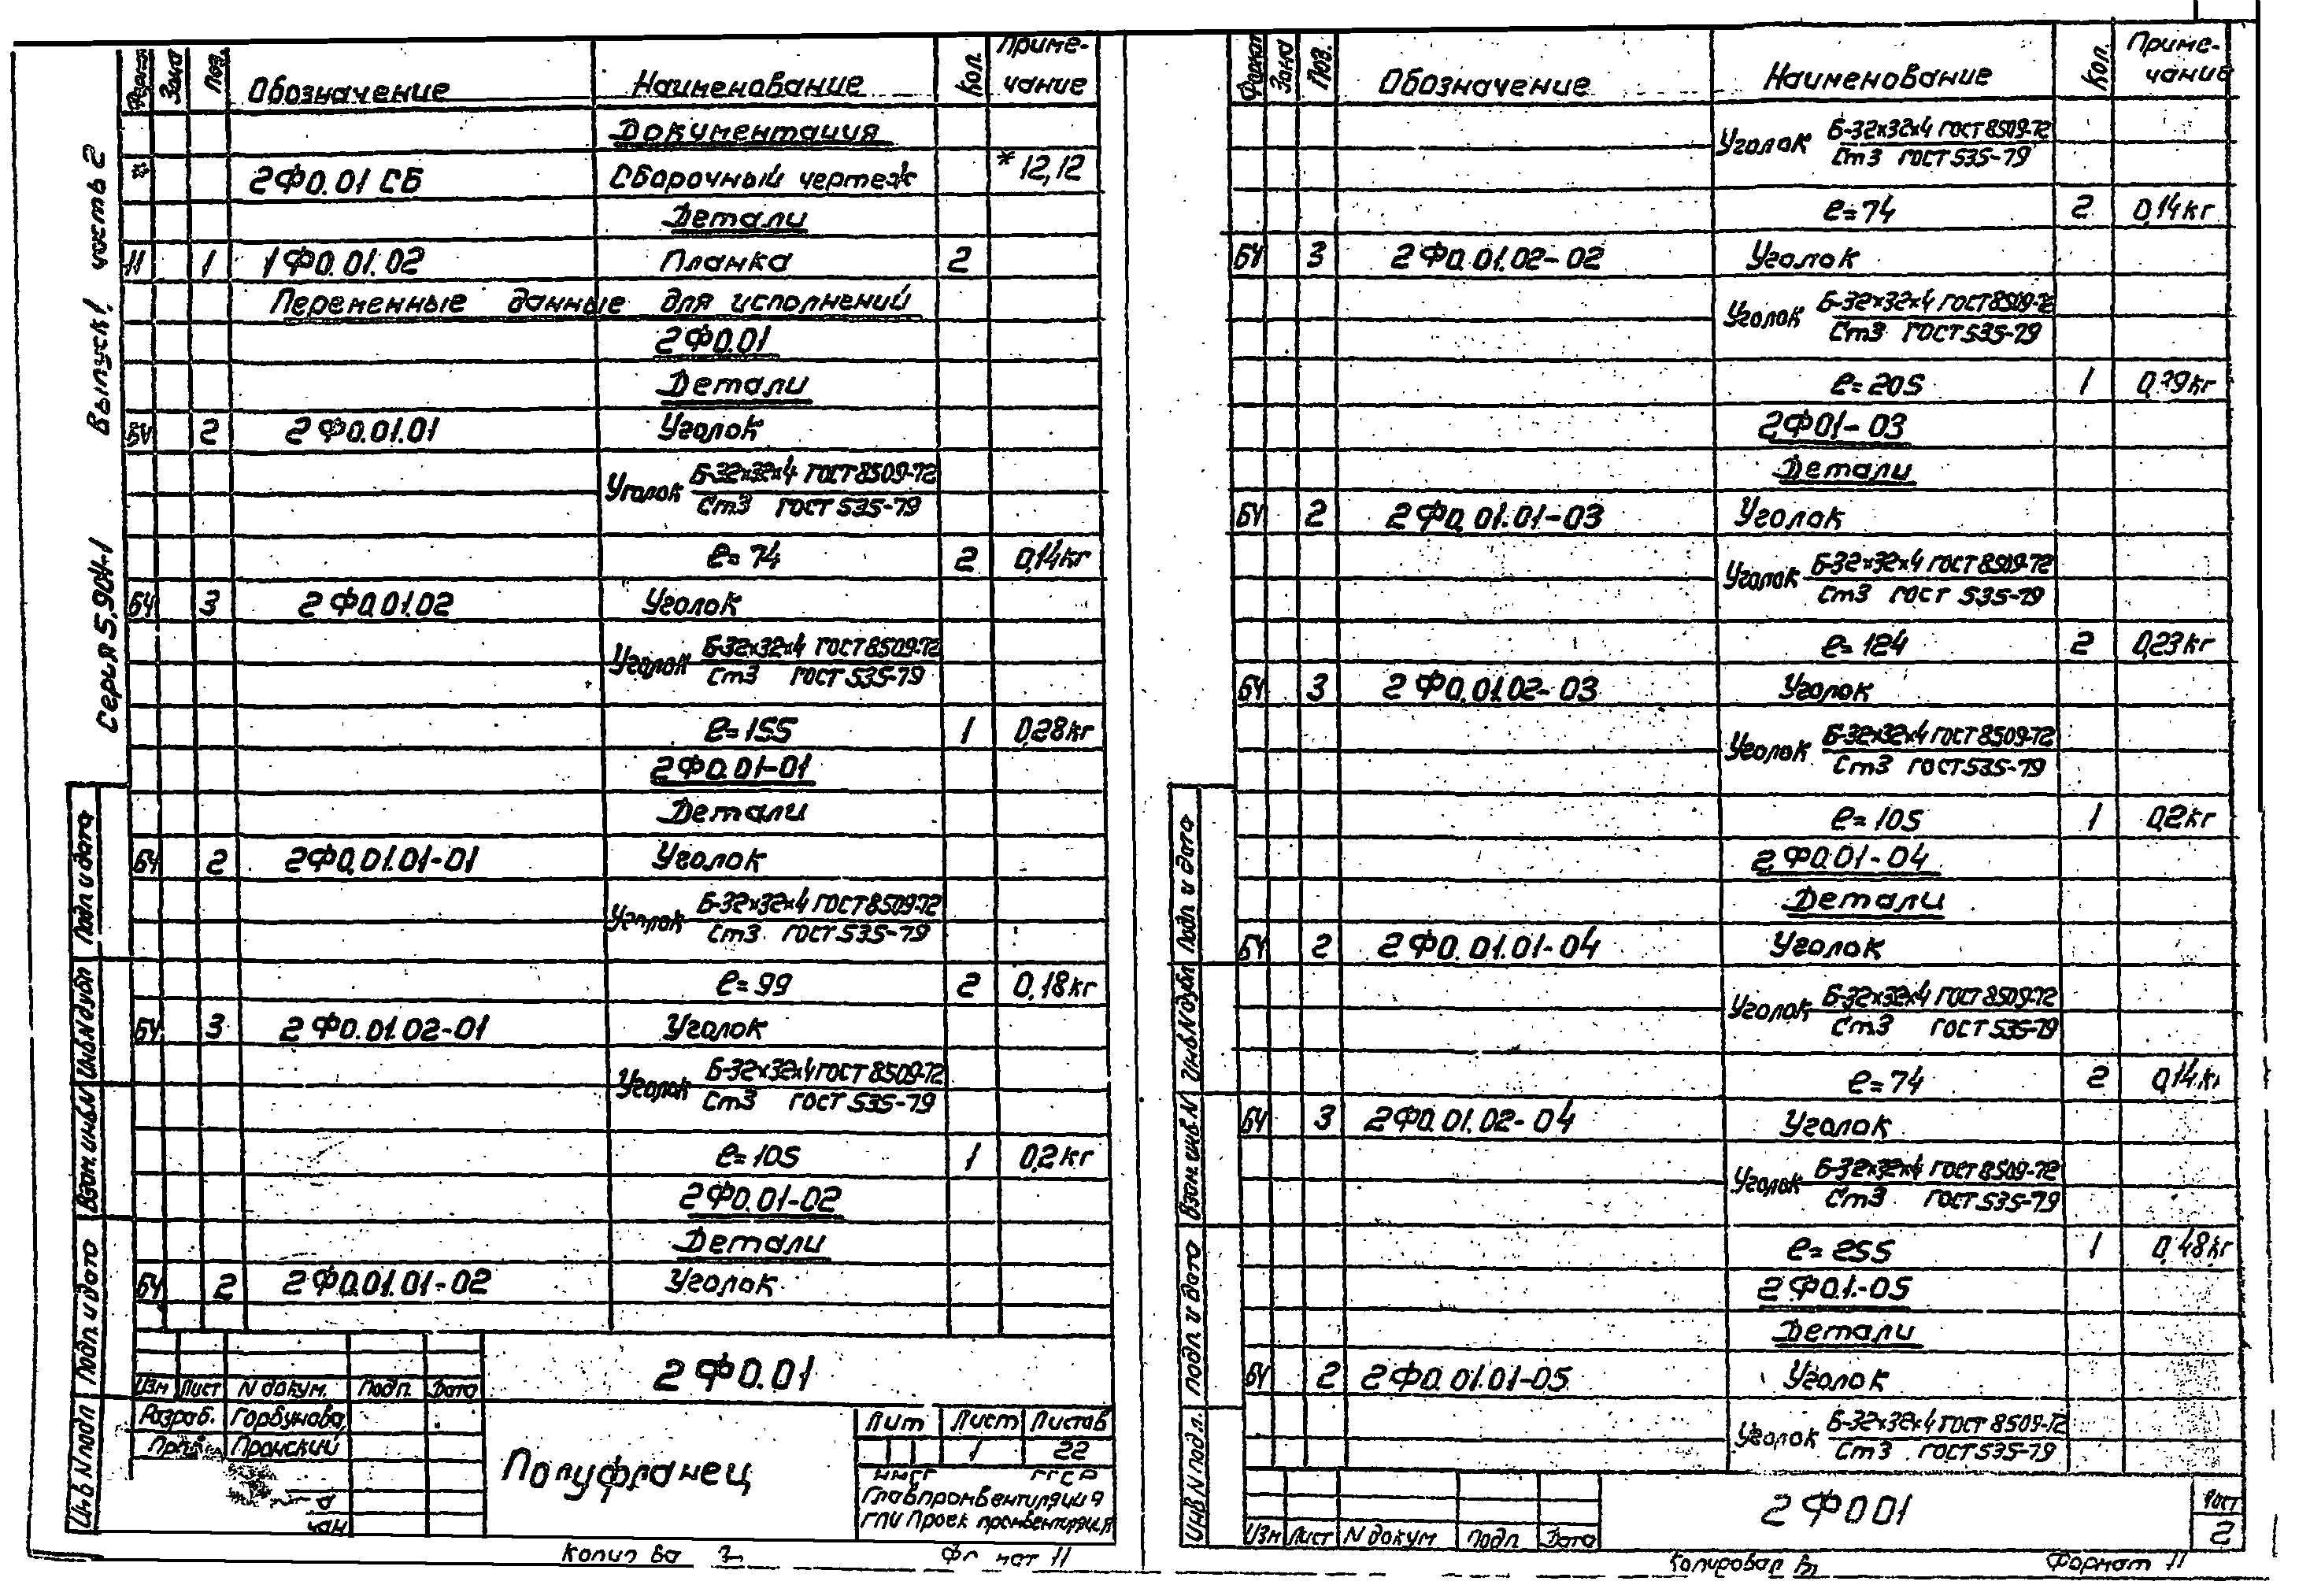 Серия 5.904-1 Выпуск 1. часть 2
Формат Зона Поз. Обозначение Наименование Кол. Приме-
чание
Документация
2Ф0.01 СБ Сборочный чертеж *12,12
Детали
11 1 1Ф0.01.02 Планка 2
Переменные данные для исполнений
2Ф0.01
Детали
БЧ 2 2Ф0.01.01 Уголок
Уголок Б-32х32х4 ГОСТ 8509-72
Ст3 ГОСТ 535-79
ℓ=74 2 0,14кг
БЧ 3 2Ф0.01.02 Уголок
Уголок Б-32х32х4 ГОСТ 8509-72
Ст3 ГОСТ 535-79
ℓ=155 1 0,28кг
2Ф0.01-01
Детали
БЧ 2 2Ф0.01.01-01 Уголок
Уголок Б-32х32х4 ГОСТ 8509-72
Ст3 ГОСТ 535-79
ℓ=99 2 0,18кг
БЧ 3 2Ф0.01.02-01 Уголок
Уголок Б-32х32х4 ГОСТ 8509-72
Ст3 ГОСТ 535-79
ℓ=105 1 0,2кг
2Ф0.01-02
Детали
БЧ 2 2Ф0.01.01-02 Уголок
Подп. и дата
Инв. N дубл.
Взам. инв. N
Подп. и дата
Инв N подл
2Ф0.01
Изм Лист N докум. Подп. Дата
Разраб. Горбунова
Пронский
Полуфланец
Лит Лист Листов
1 22
Главпромвентиляция
ГПИ Проектпромвентиляция
11
Формат Зона Поз. Обозначение Наименование Кол. Приме-
чание
Уголок Б-32х32х4 ГОСТ 8509-72
Ст3 ГОСТ 535-79
ℓ=74 2 0,14кг
БЧ 3 2Ф0.01.02-02 Уголок
Уголок Б-32х32х4 ГОСТ 8509-72
Ст3 ГОСТ 535-79
ℓ=205 1 0,39кг
2Ф01-03
Детали
БЧ 2 2Ф0.01.01-03 Уголок
Уголок Б-32х32х4 ГОСТ 8509-72
Ст3 ГОСТ 535-79
ℓ=124 2 0,23кг
БЧ 3 2Ф0.01.02-03 Уголок
Уголок Б-32х32х4 ГОСТ 8509-72
Ст3 ГОСТ 535-79
ℓ=105 1 0,2кг
2Ф0.01-04
Детали
БЧ 2 2Ф0.01.01-04 Уголок
Уголок Б-32х32х4 ГОСТ 8509-72
Ст3 ГОСТ 535-79
ℓ=74 2 0,14кг
БЧ 3 2Ф0.01.02-04 Уголок
Уголок Б-32х32х4 ГОСТ 8509-72
Ст3 ГОСТ 535-79
ℓ=255 1 0,48кг
2Ф0.1-05
Детали
БЧ 2 2Ф0.01.01-05 Уголок
Уголок Б-32х32х4 ГОСТ 8509-72
Ст3 ГОСТ 535-79
Подп. и дата
Инв. N дубл
Взам. инв. N
Подп. и дата
Инв N подл.
Изм Лист N докум Подп. Дата
2Ф001
Лист
2
Копировал Формат 11